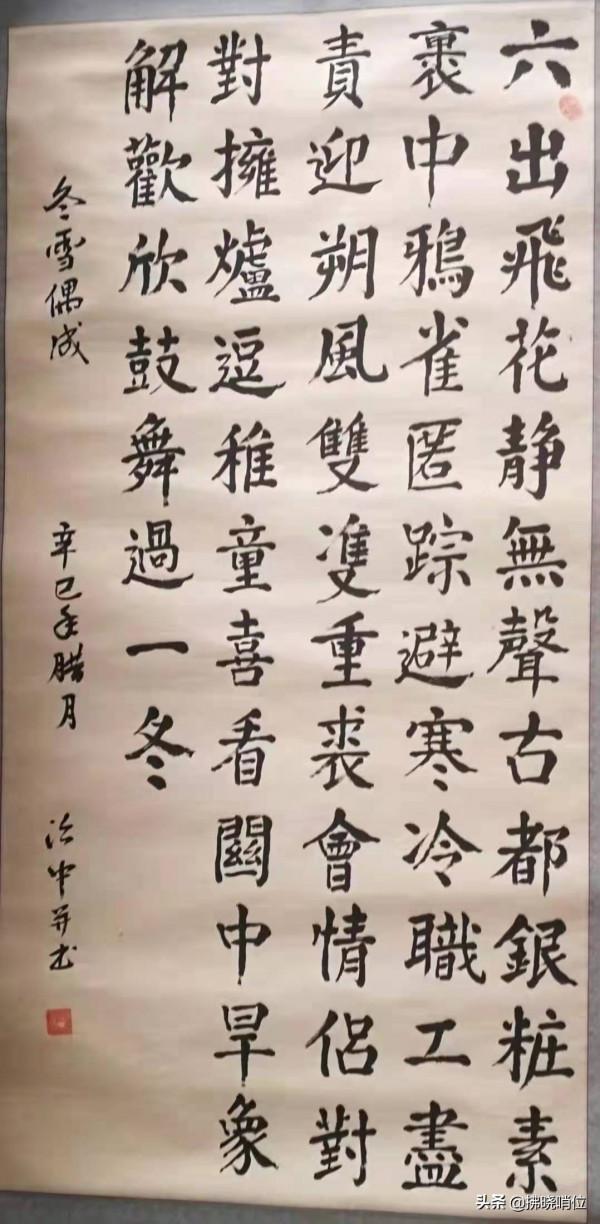 六出飛花静無聲古都銀粧素
裹中鴉雀匿踪避寒冷職工盡
責迎朔風雙雙重裘會情侶對
對擁爐逗稚童喜看關中旱象
解歡欣鼓舞過一冬
冬雪偶成
辛巳年腊月
治中并书
头条 @拂晓哨位